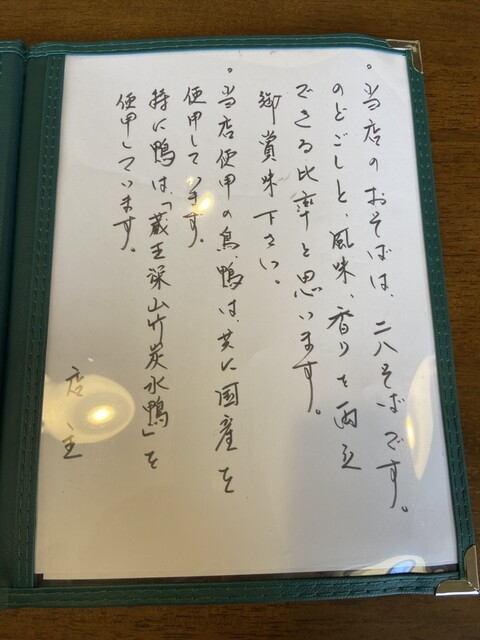 。当店のおそばは、二八そばです。
のどごしと、風味、香りを両立
できる比率と思います。
御賞味下さい。
。当店使用の鳥、鴨は、共に国産を
使用しています。
特に鴨は、「蔵王深山竹炭水鴨」を
使用しています。
店主